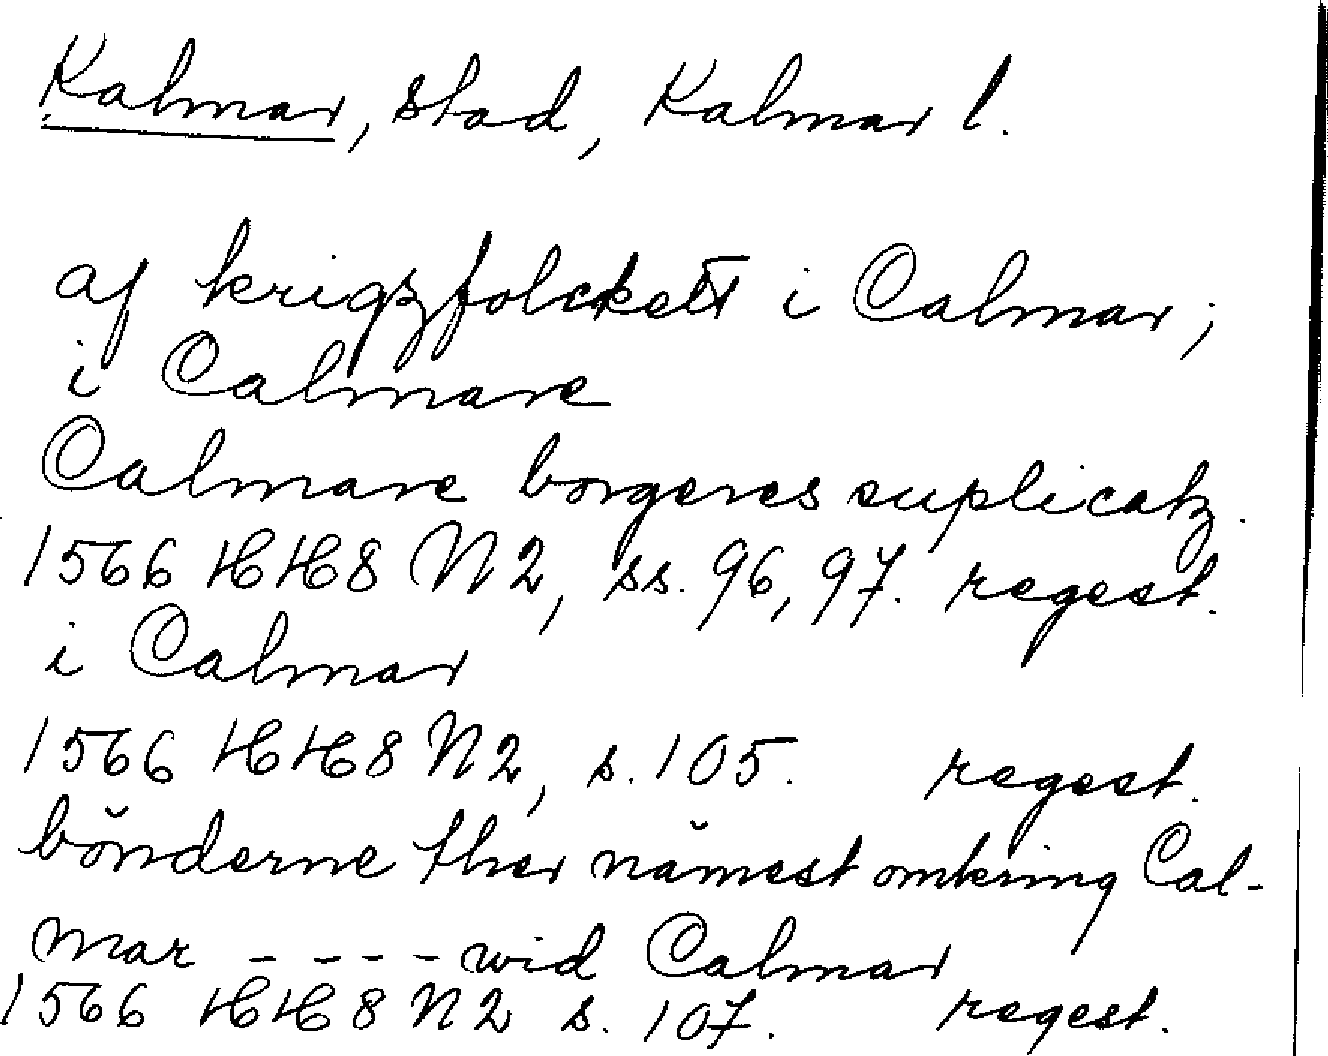 Kalmar, stad, Kalmar l.
af krigzfolckett i Calmar;
i Calmare
Calmare borgeres suplicatz.
1566 HH8 N2, ss. 96, 97. regest.
i Calmar
1566 HH8 N2, s. 105. regest.
bönderne ther nämest omkring Cal-
mar - - - - wid Calmar
1566 HH8 N2 s. 107. regest.